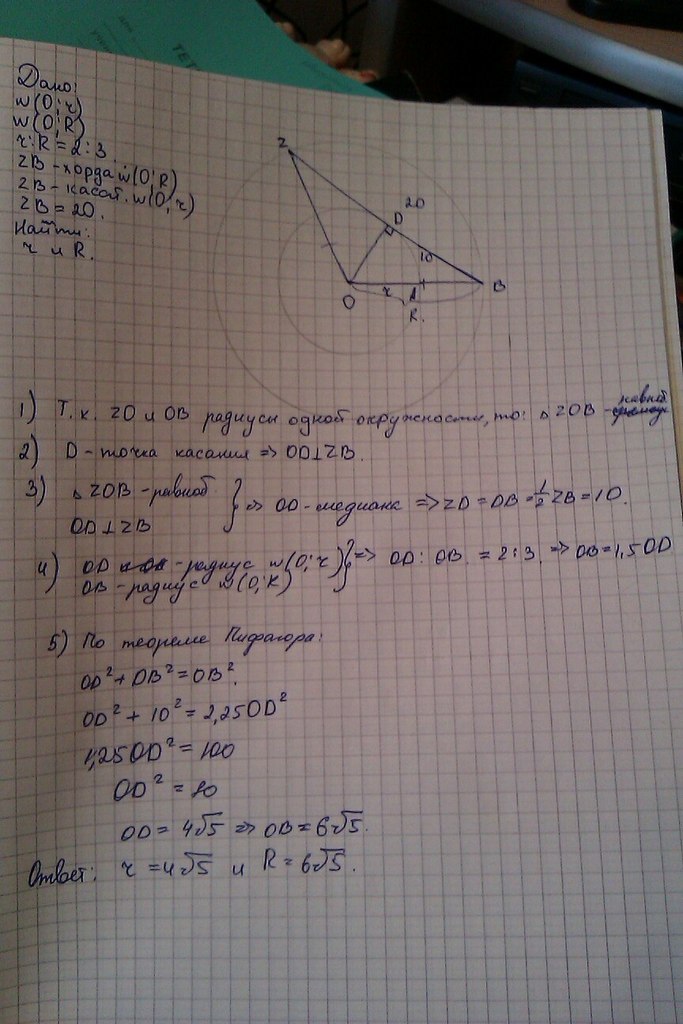 Дано:
w(O; r)
w(O; R)
r:R = 2:3.
ZB - хорда w(O; R)
ZB - касат. w(O; r)
ZB = 20.
Найти:
r и R.
Z
D
20
10
O
r
A
B
R.
1) Т.к. ZO и OB радиусы одной окружности, то: △ ZOB - равноб
2) D - точка касания => OD⊥ZB.
3) △ ZOB - равноб
OD⊥ZB
} => OD - медиана => ZD = DB = 1/2 ZB = 10.
4) OD - радиус w(O; r)
OB - радиус w(O; R)
} => OD : OB = 2:3. => OB = 1,5 OD
5) По теореме Пифагора:
OD² + DB² = OB².
OD² + 10² = 2,25OD²
1,25OD² = 100
OD² = 80
OD = 4√5 => OB = 6√5.
Ответ: r = 4√5 и R = 6√5.